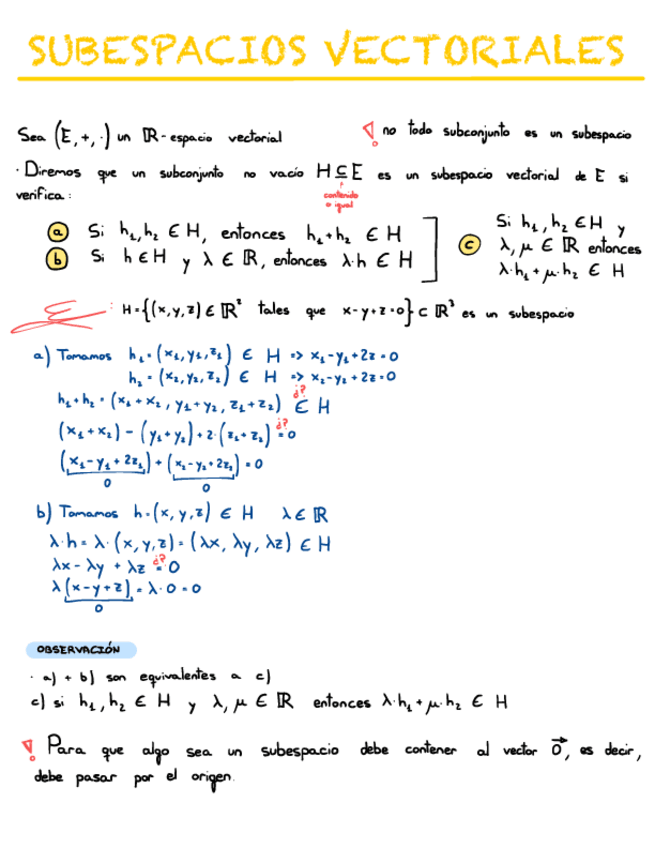 SUBESPACIOS VECTORIALES
Sea (E, +, ·) un ℝ-espacio vectorial
! no todo subconjunto es un subespacio
· Diremos que un subconjunto no vacío H ⊆ E es un subespacio vectorial de E si
contenido
o igual
verifica:
a Si h₁, h₂ ∈ H, entonces h₁+h₂ ∈ H
b Si h ∈ H y λ ∈ ℝ, entonces λ·h ∈ H
c Si h₁, h₂ ∈ H y
λ, μ ∈ ℝ entonces
λ·h₁ + μ·h₂ ∈ H
E: H = {(x, y, z) ∈ ℝ² tales que x-y+z=0} ⊂ ℝ³ es un subespacio
a) Tomamos h₁ = (x₁, y₁, z₁) ∈ H => x₁-y₁+2z=0
h₂ = (x₂, y₂, z₂) ∈ H => x₂-y₂+2z=0
h₁+h₂ = (x₁+x₂, y₁+y₂, z₁+z₂) ¿? ∈ H
(x₁+x₂) - (y₁+y₂) + 2·(z₁+z₂) ¿? = 0
(x₁-y₁+2z₁) + (x₂-y₂+2z₂) = 0
0 0
b) Tomamos h = (x, y, z) ∈ H λ ∈ ℝ
λ·h = λ·(x, y, z) = (λx, λy, λz) ∈ H
λx - λy + λz ¿? = 0
λ(x-y+z) = λ·0 = 0
0
OBSERVACIÓN
· a) + b) son equivalentes a c)
c) si h₁, h₂ ∈ H y λ, μ ∈ ℝ entonces λ·h₁ + μ·h₂ ∈ H
! Para que algo sea un subespacio debe contener al vector 0⃗, es decir,
debe pasar por el origen.